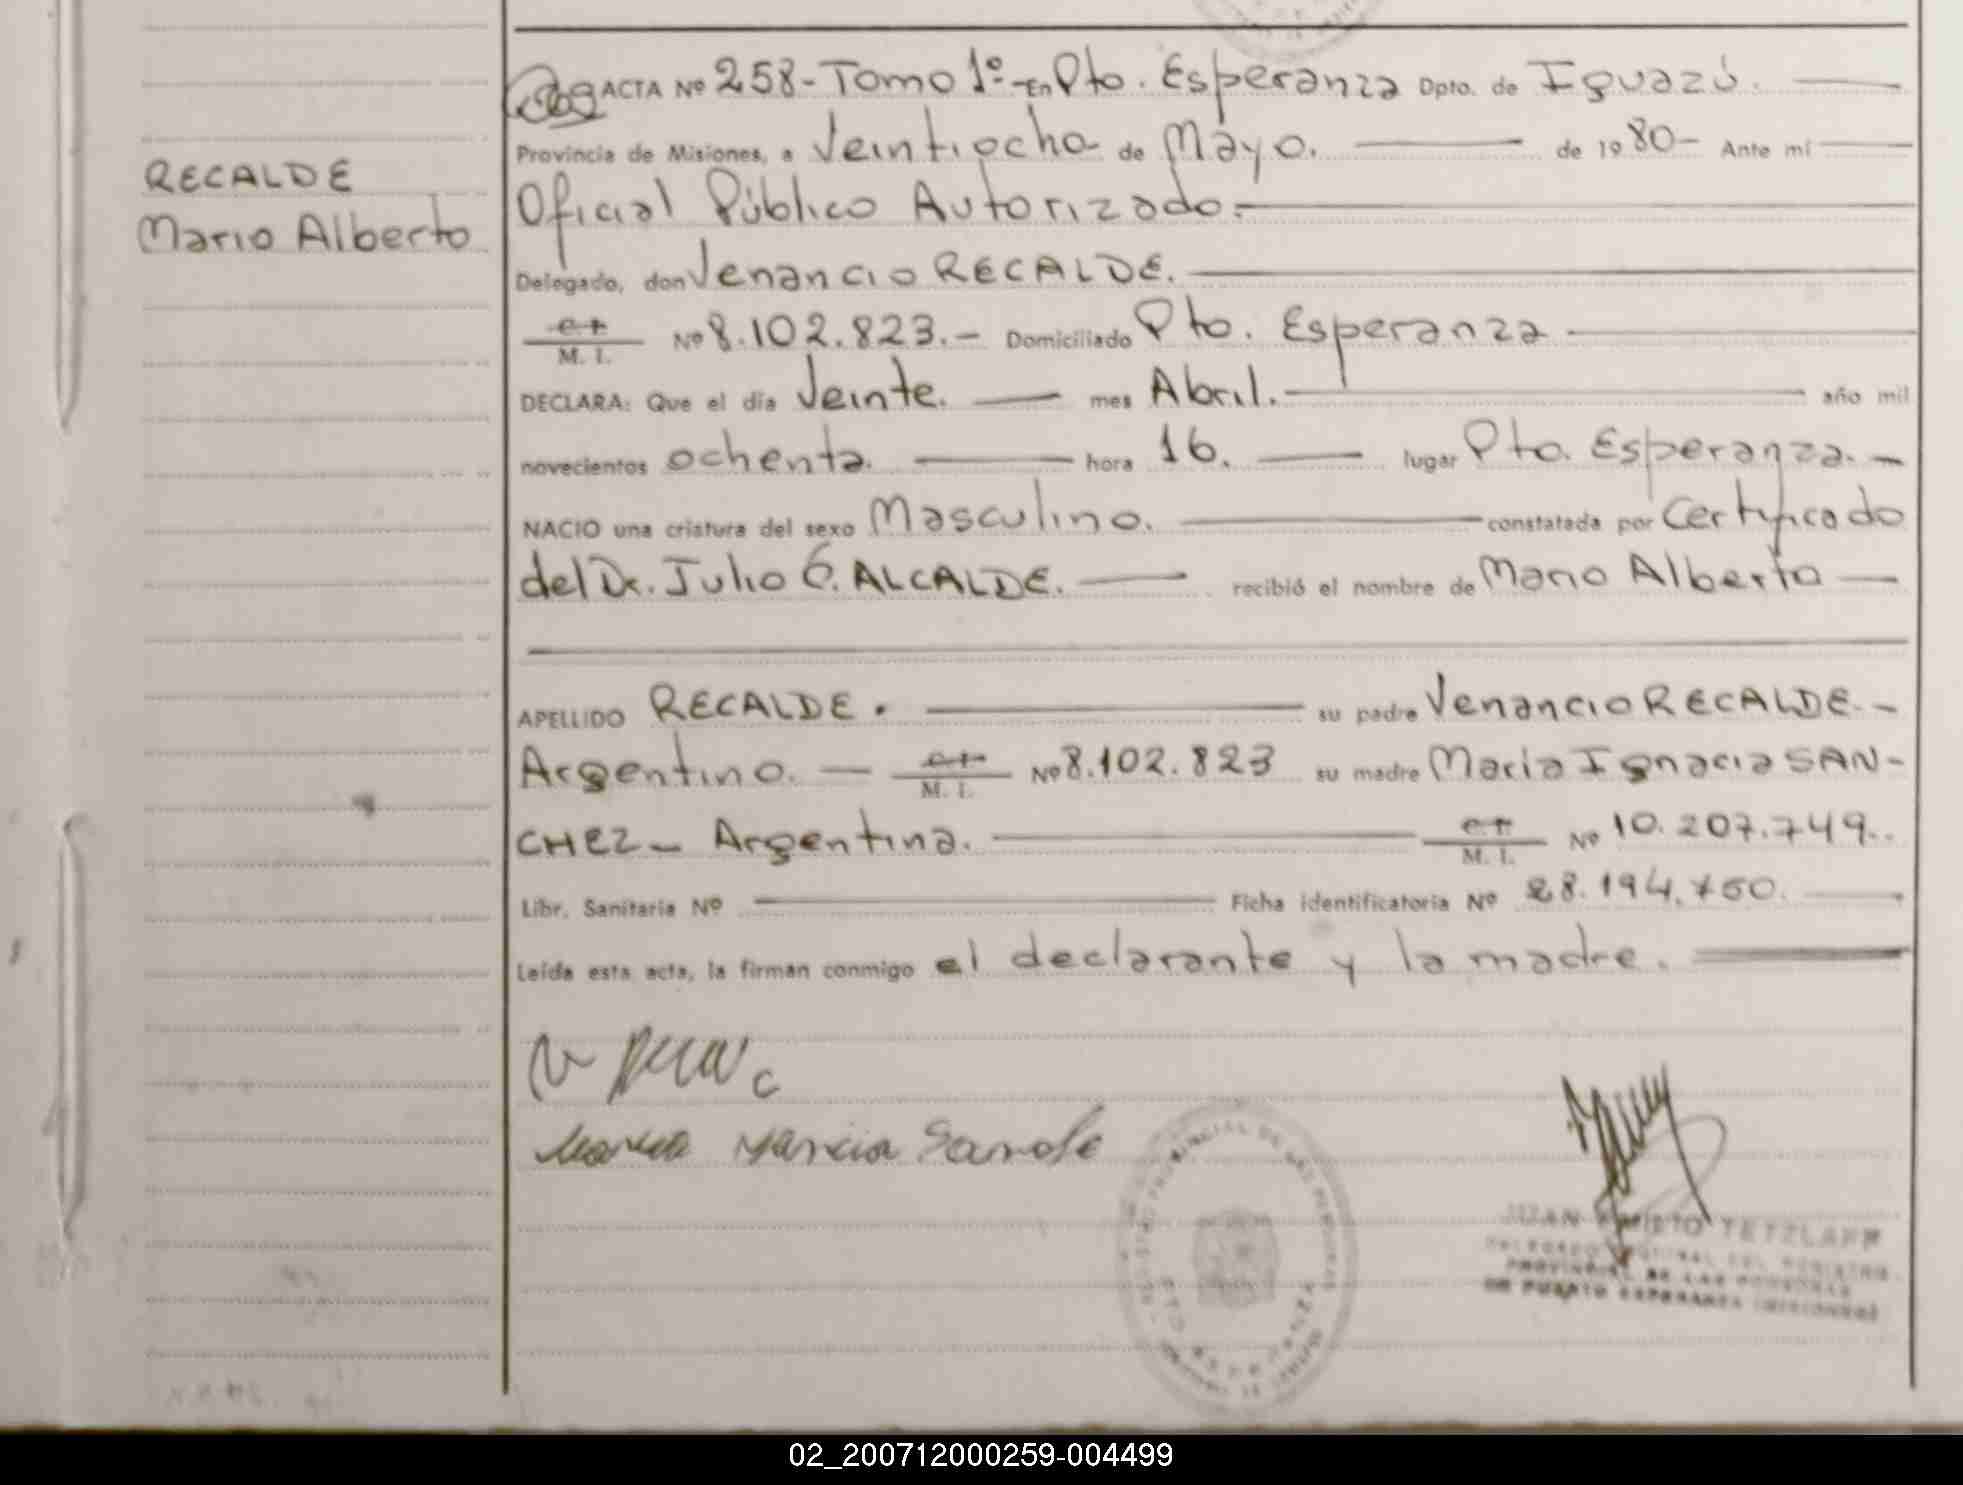 ACTA Nº 258-Tomo 1º-En Pto. Esperanza Dpto. de Iguazú.
Provincia de Misiones, a Veintiocho de Mayo. de 1980- Ante mí
RECALDE
Mario Alberto
Oficial Público Autorizado.-
Delegado, don Venancio RECALDE.
M. I. Nº 8.102.823.- Domiciliado Pto. Esperanza
DECLARA: Que el día Veinte. mes Abril. año mil
novecientos ochenta. hora 16. lugar Pto. Esperanza.-
NACIO una criatura del sexo Masculino. constatada por Certificado
del Dr. Julio C. ALCALDE. recibió el nombre de Mario Alberto
APELLIDO RECALDE. su padre Venancio RECALDE.-
Argentino. M. I. Nº 8.102.823 su madre Maria Ignacia SAN-
CHEZ- Argentina. M. I. Nº 10.207.749..
Libr. Sanitaria Nº Ficha identificatoria Nº 28.194.750.
Leída esta acta, la firman conmigo el declarante y la madre.
JUAN TETZLAFF
PROVINCIAL DE LAS PERSONAS
DE PUERTO ESPERANZA (MISIONES)
02_200712000259-004499